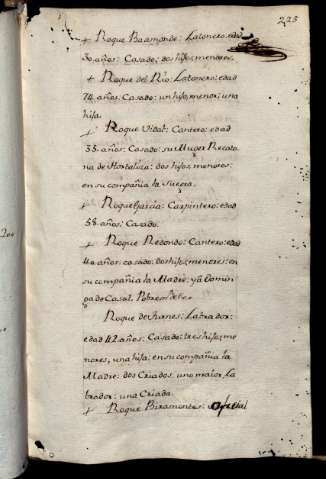 225
+ Roque Baamonde: Latonero: edad
30 años: Casado; dos hijos, menores.
+ Roque del Río: Latonero: edad
74 años: Casado: un hijo, menor; una
hija.
+ Roque Vidal: Cantero: edad
35 años: Casado: su Muger Recato
na de Hortaliza: dos hijos, menores:
en su compañia la Suegra.
+ Roque Garcia: Carpintero: edad
58 años: Casado.
+ Roque Redondo: Cantero: edad
40 años: casado: dos hijos, menores: en
su compañia la Madre:
pa de Casal. Pobres
Roque de : Labrador:
edad 42 años: Casado: tres hijos, me
nores, una hija: en su compañia la
Madre: dos Criados, uno maior, La
brador: una Criada.
+ Roque : Oficial